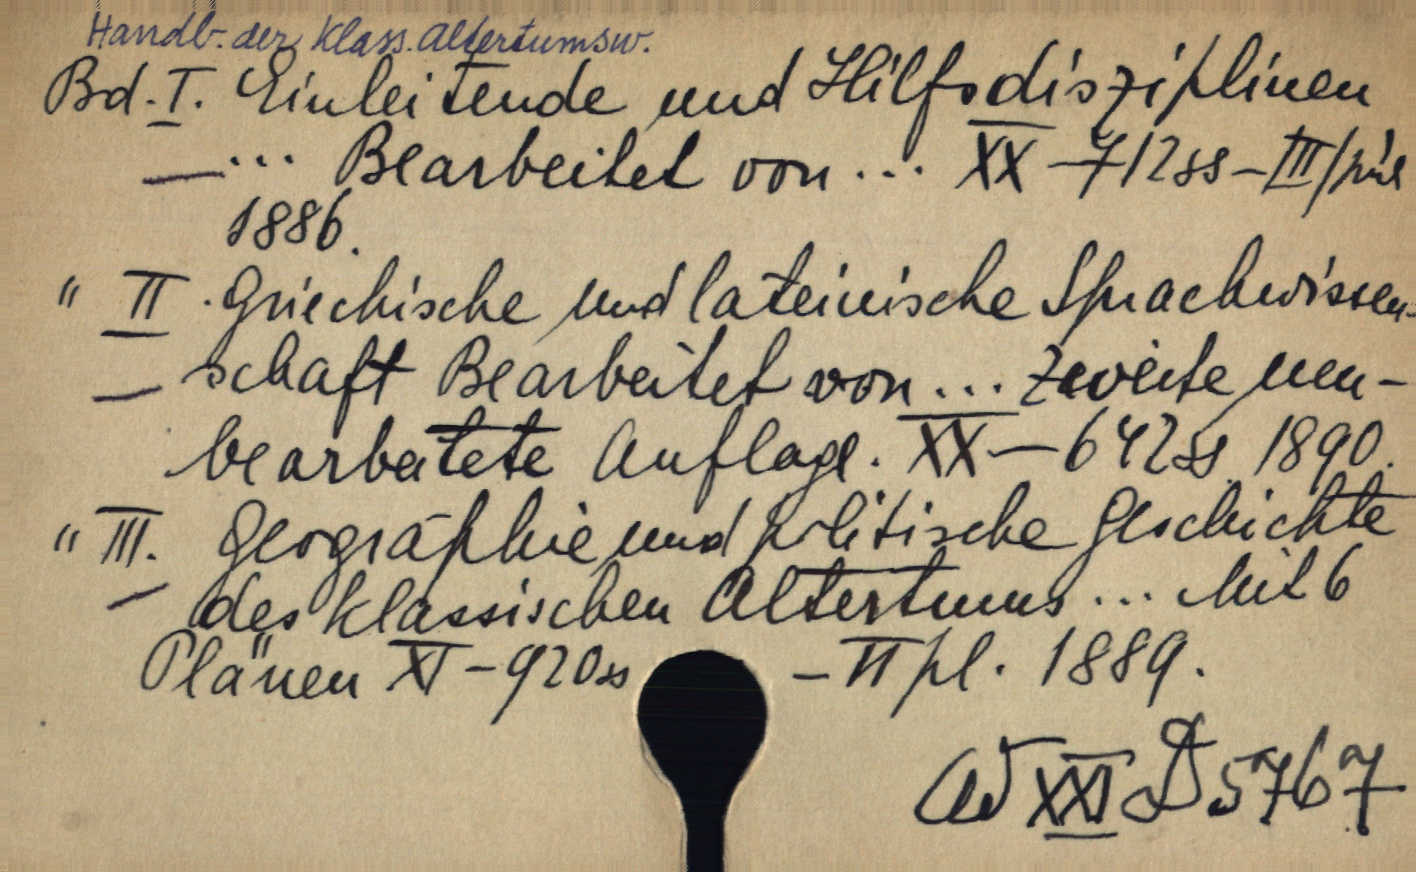 Handb. der klass. Altertumsw.
Bd. I. Einleitende und Hilfsdisziplinen
— ... Bearbeitet von ... XX — 712 ss — III
1886.
" II. Griechische und lateinische Sprachwissen-
— schaft Bearbeitet von ... Zweite neu-
bearbeitete Auflage. XX — 642 ss 1890.
" III. Geographie und politische Geschichte
— des klassischen Altertums ... Mit 6
Plänen XI — 920 ss — VI pl. 1889.
XXI D 5767